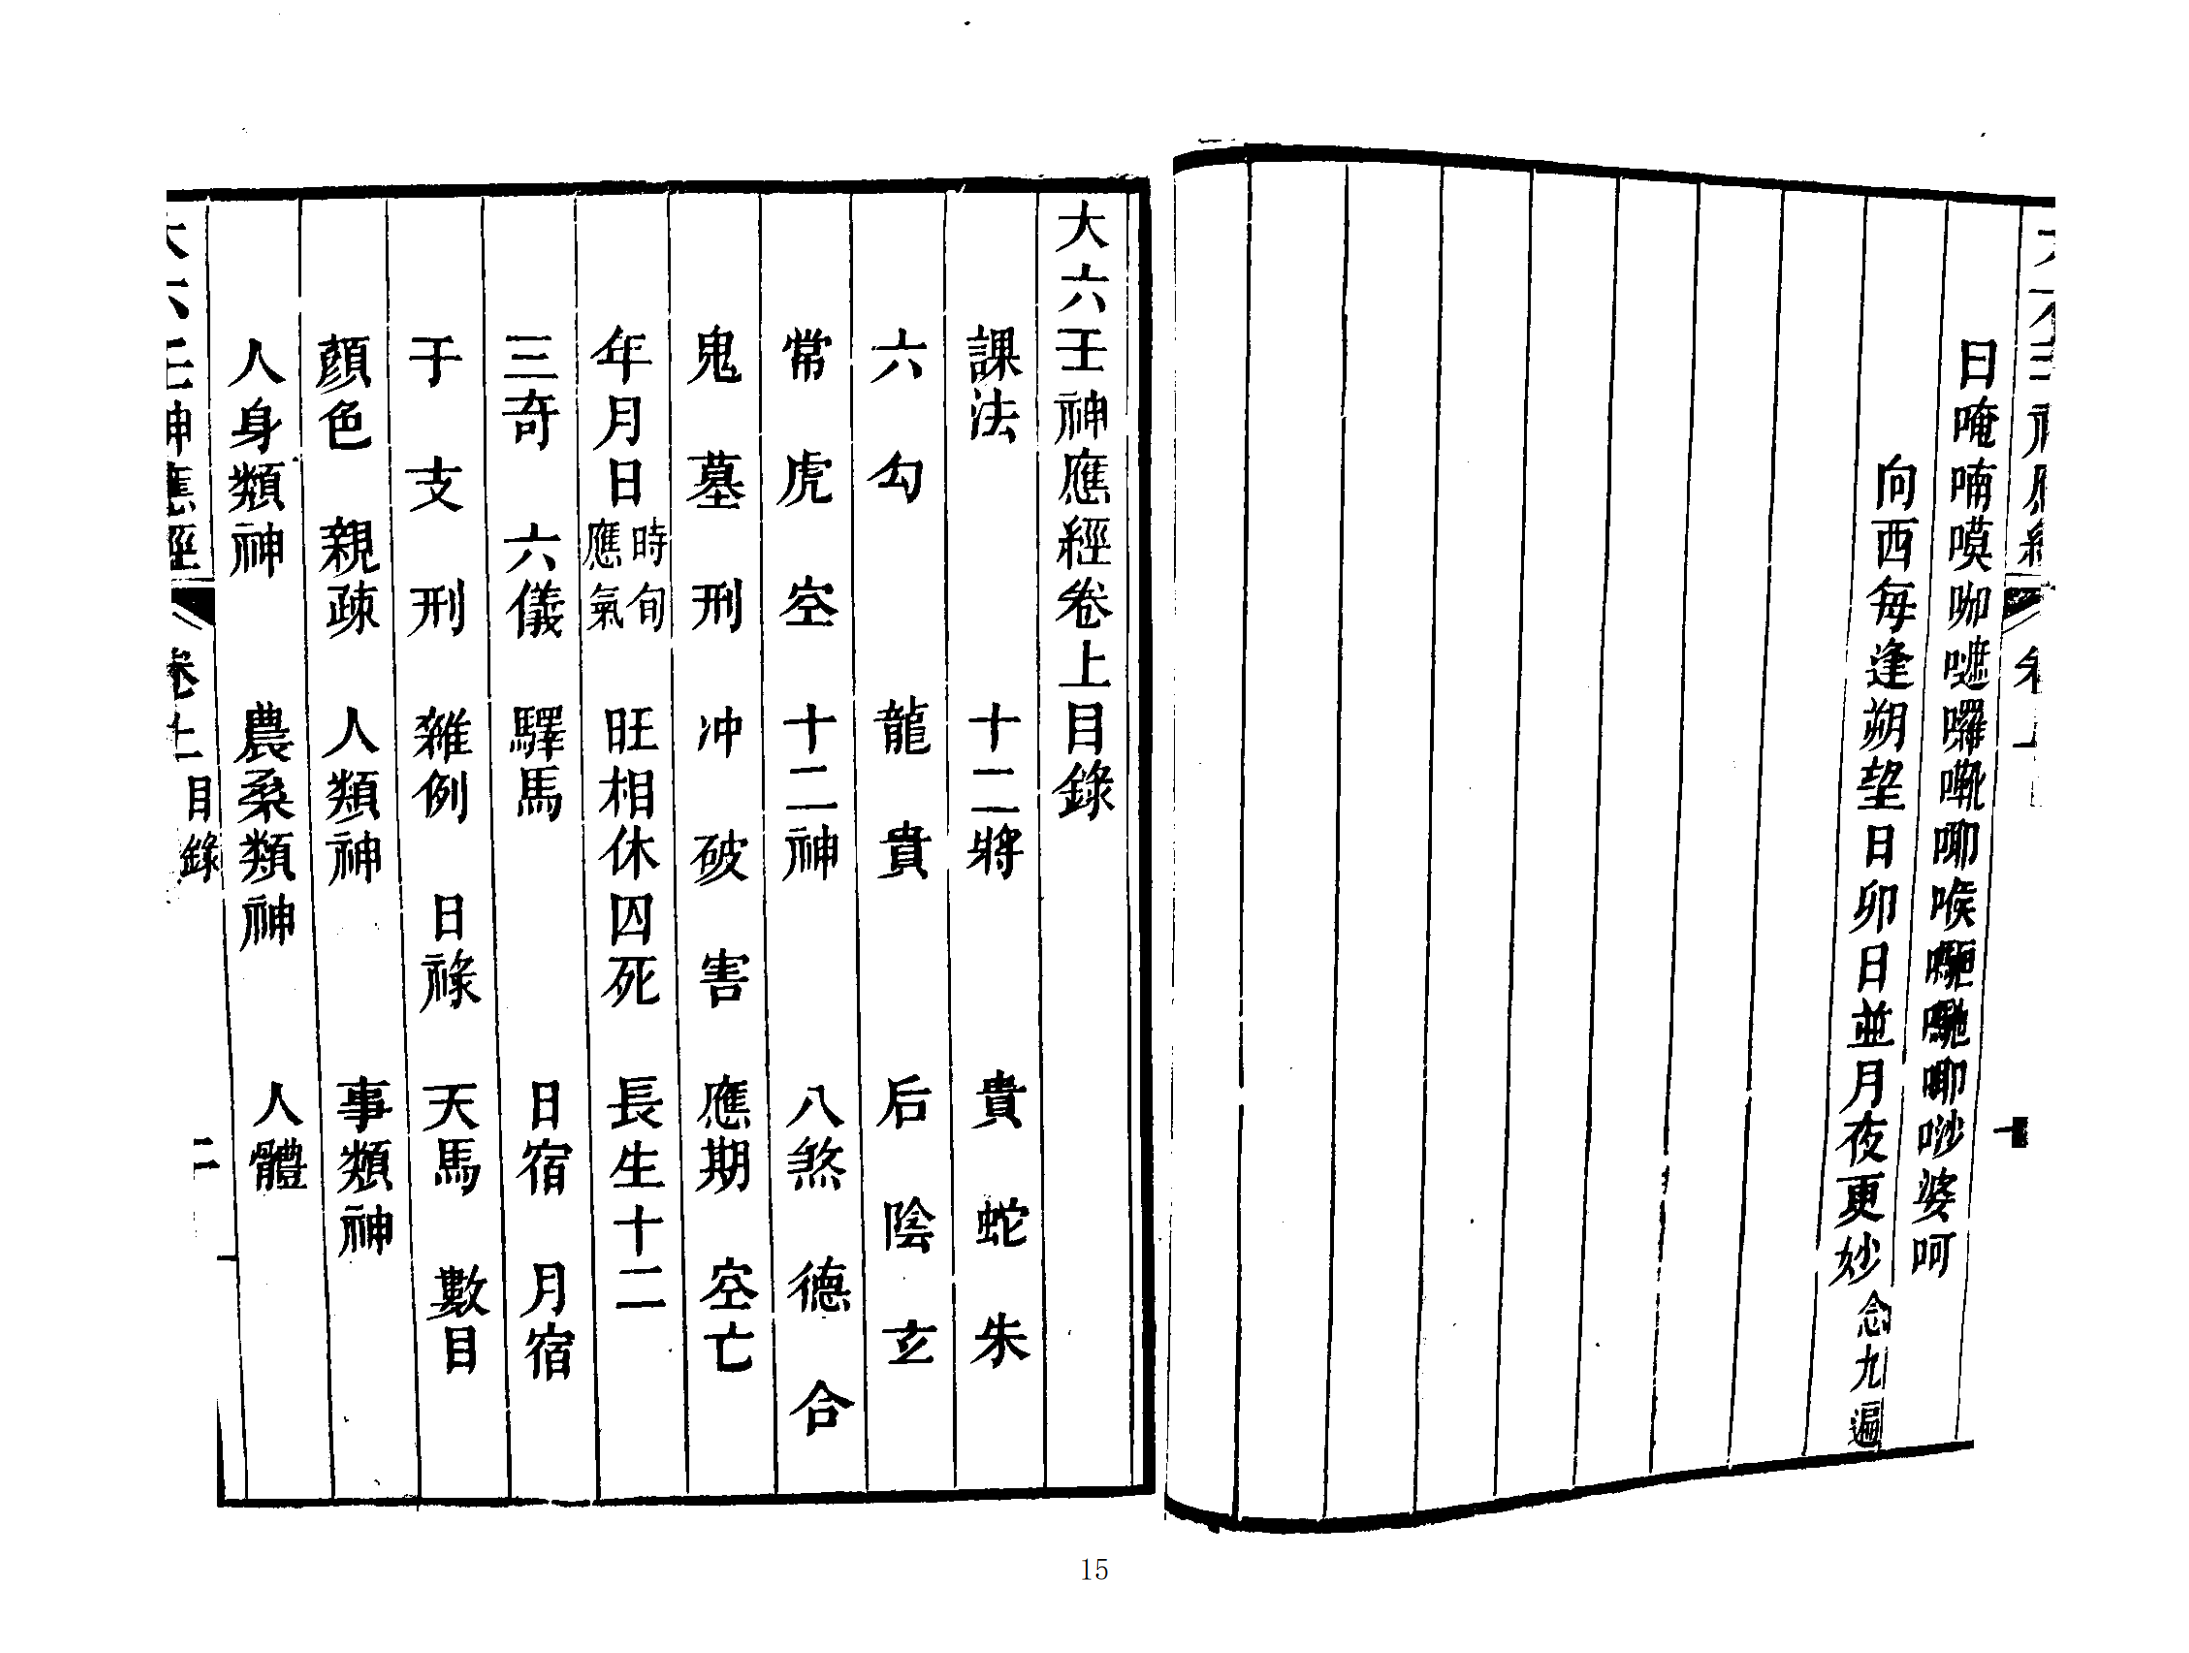 曰唵喃嘆咖嗻囉嘅唧喉
唧唦婆呵
向西每逢朔望日卯日並月夜更妙念九遍
大六壬神應經卷上目錄
課法 十二將 貴 蛇 朱
六 勾 龍 貴 后 陰 玄
常 虎 空 十二神 八煞 德 合
鬼 墓 刑 冲 破 害 應期 空亡
年月日時旬應氣 旺相休囚死 長生十二
三奇 六儀 驛馬 日宿 月宿
于支 刑 雜例 日祿 天馬 數目
顏色 親疎 人類神 事類神
人身類神 農桑類神 人體
大六壬神應經 卷上目錄 二
15